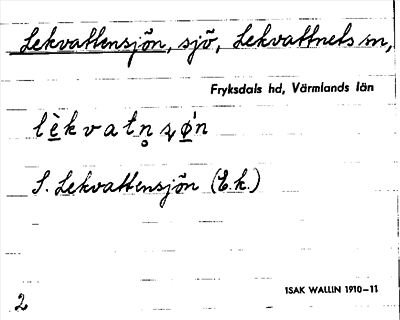 Lekvattensjön, sjö, Lekvattnets sn,
Fryksdals hd, Värmlands län
lè̲kvatn̥ʂǿ̲n
S. Lekvattensjön (E.k.)
ISAK WALLIN 1910-11
2